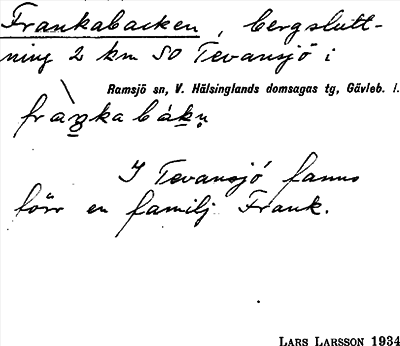 Frankabacken, bergslutt-
ning 2 km SO Tevansjö i
Ramsjö sn, V. Hälsinglands domsagas tg, Gävleb. l.
I Tevansjö fanns
förr en familj Frank.
LARS LARSSON 1934